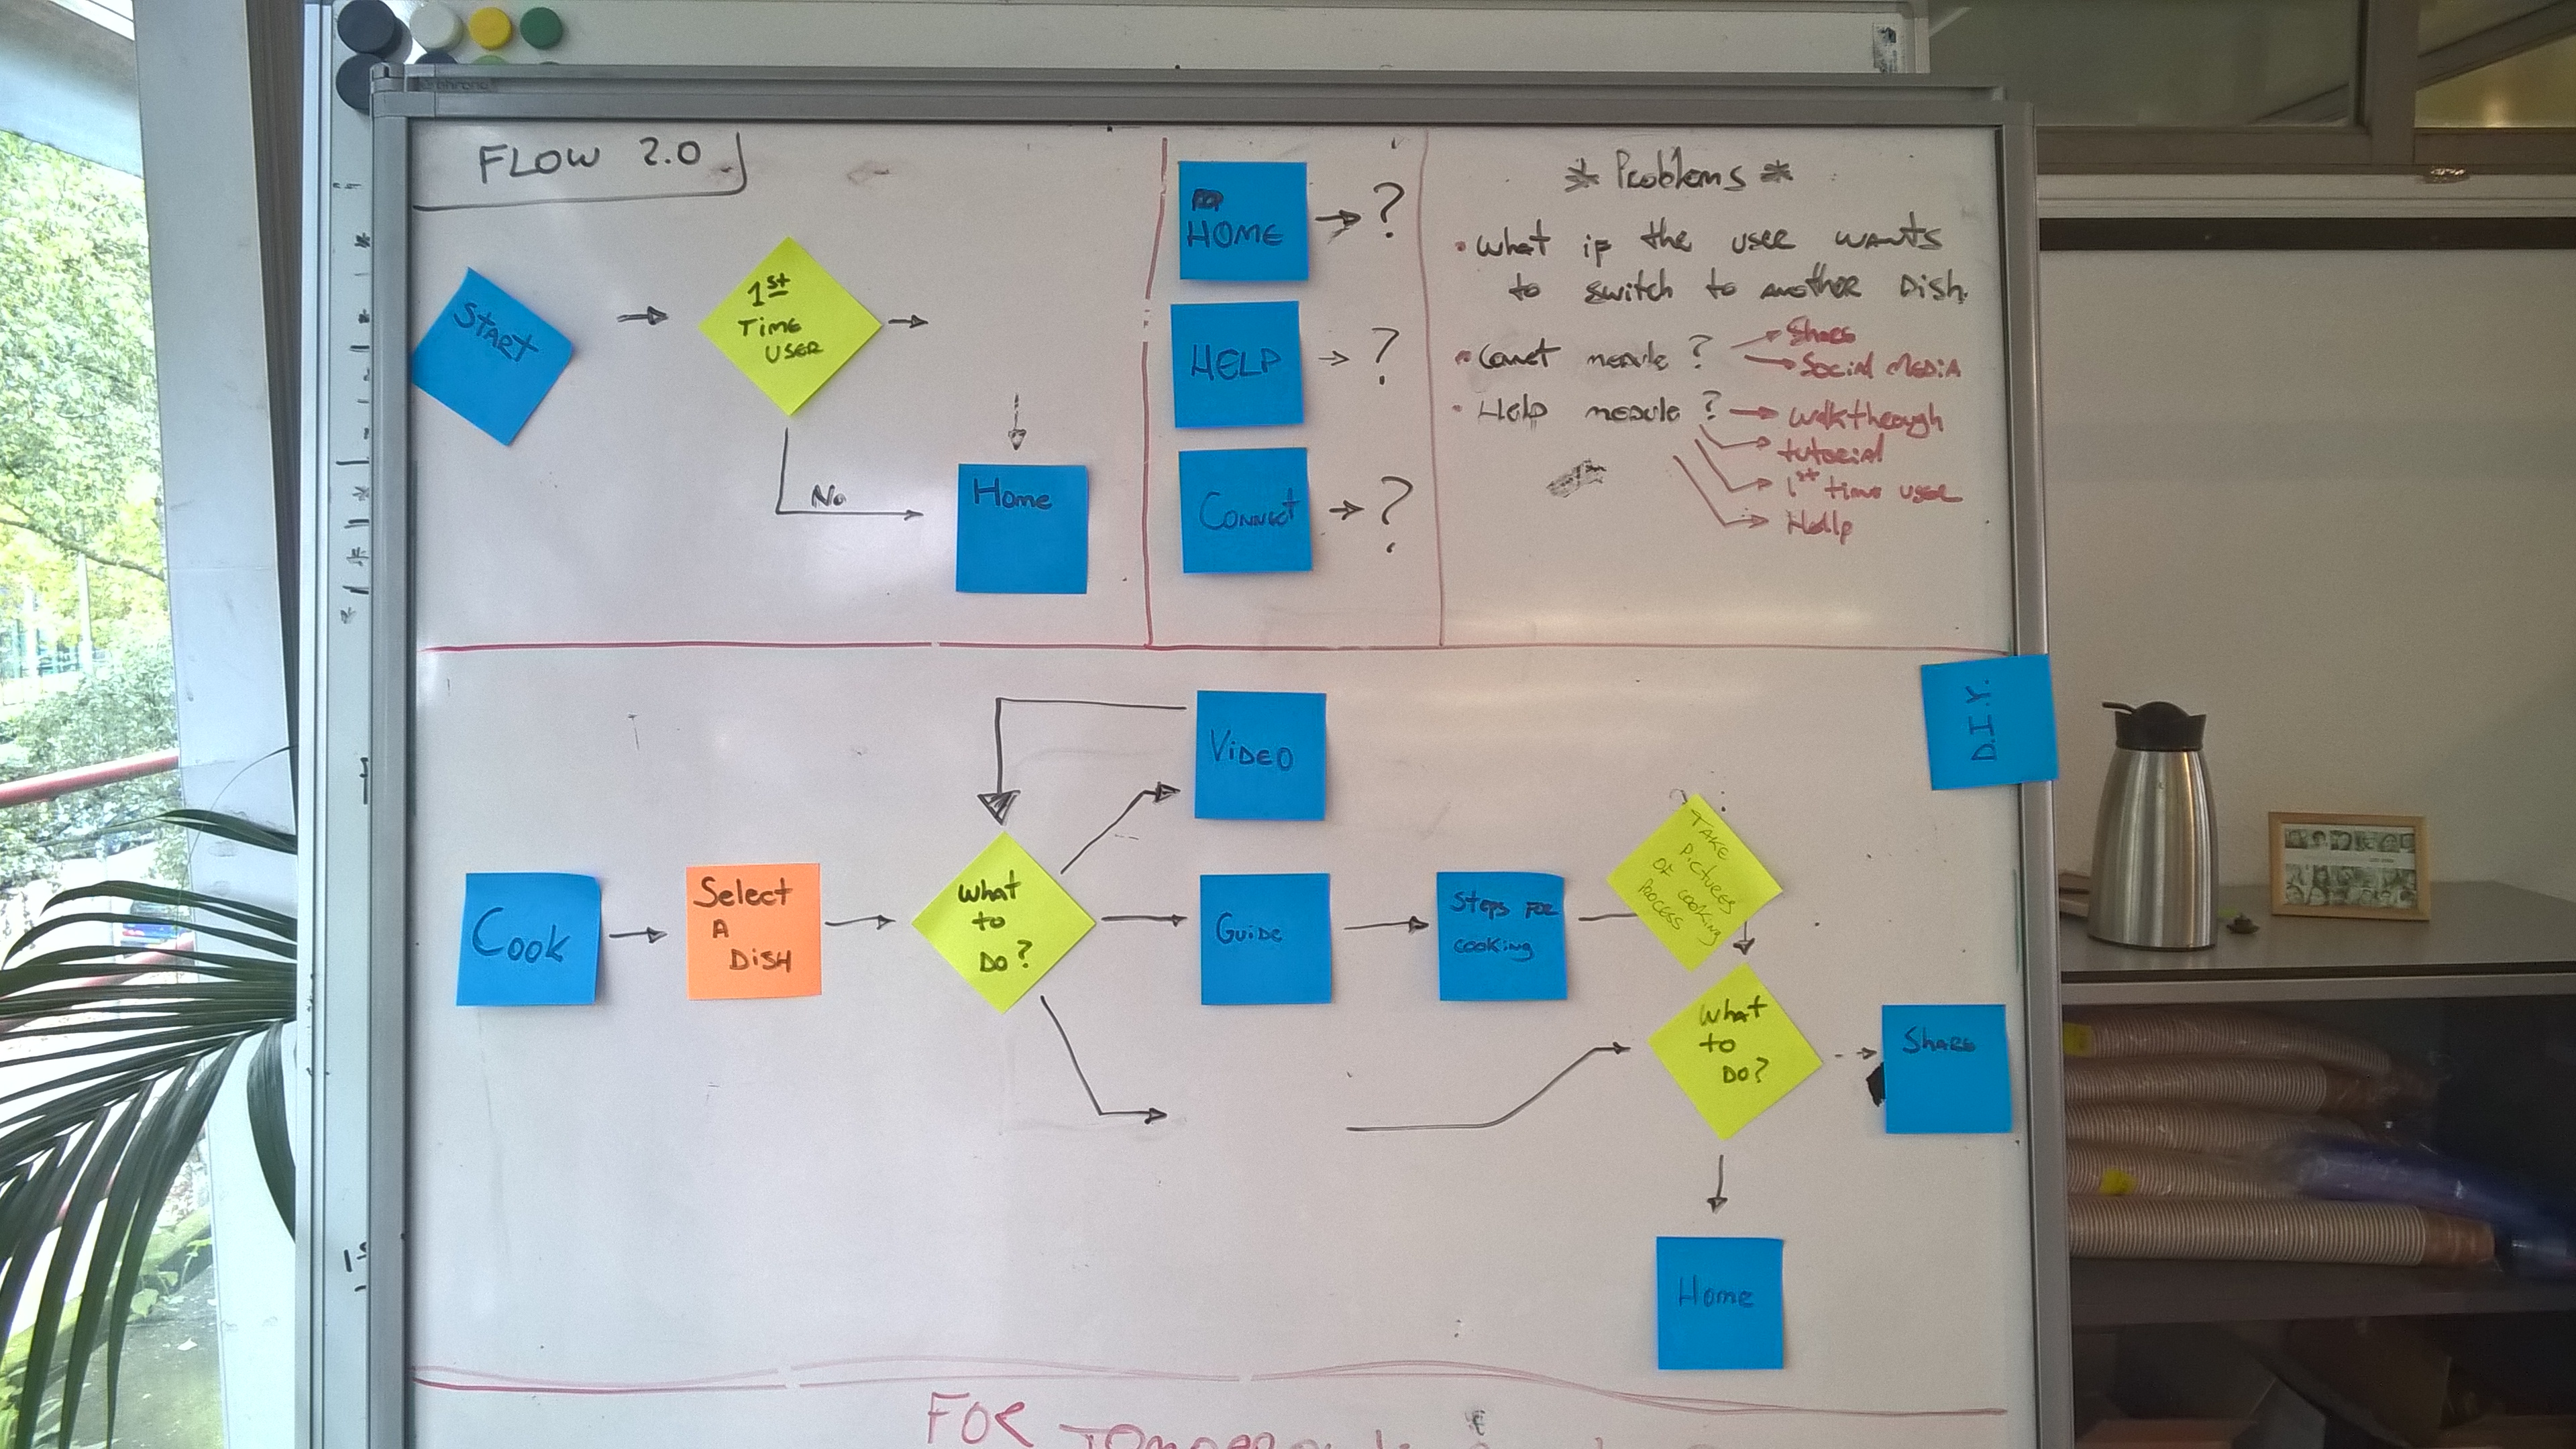 FLOW 2.0
START
1st
TIME
USER
No
Home
HOME
?
HELP
?
CONNECT
?
* Problems *
• What if the user wants
to switch to another Dish.
• Conect module ?
Share
Social MEDIA
• Help module ?
walkthrough
tutorial
1st time user
Hellp
D.I.Y.
VIDEO
Cook
Select
A
DISH
What
to
DO?
GUIDE
Steps FOR
cooking
TAKE
PICTURES
OF COOKING
PROCESS
What
to
DO?
SHARE
Home
FOR